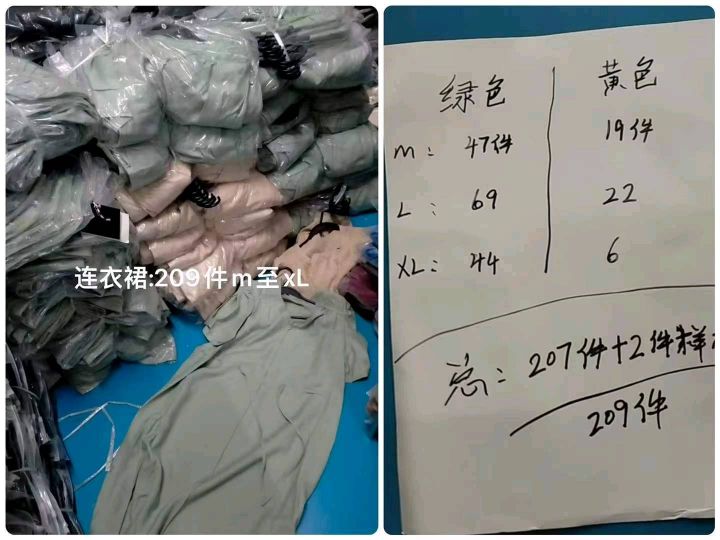 连衣裙:209件m至xL
绿色 黄色
m: 47件 19件
L: 69 22
XL: 44 6
总: 207件+2件样
209件